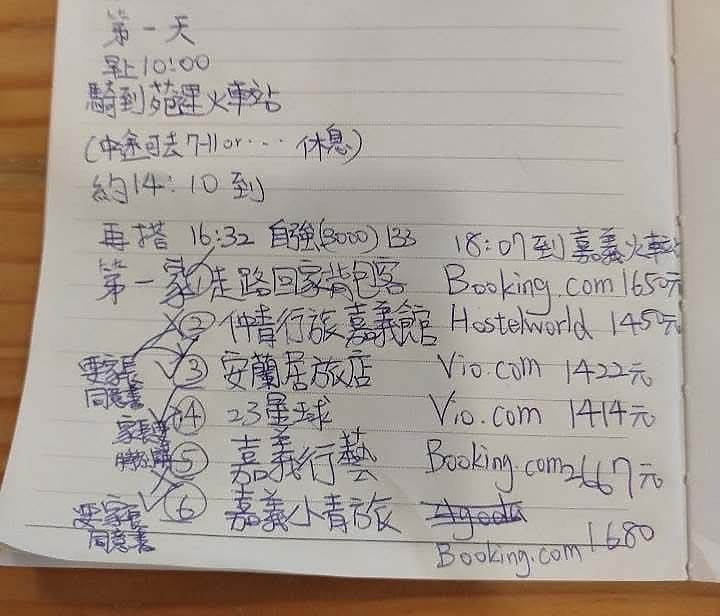 第一天
早上10:00
騎到苑裡火車站
(中途可去7-11 or … 休息)
約14:10到
再搭 16:32 自強(3000) 133 18:07到嘉義火車站
第一家①走路回家背包客 Booking.com 1650元
②仲青行旅嘉義館 Hostelworld 1450元
要家長同意書 ③安蘭居旅店 Vio.com 1422元
④23星球 Vio.com 1414元
⑤嘉義行藝 Booking.com 2667元
要家長同意書 ⑥嘉義小青旅 Agoda
Booking.com 1680